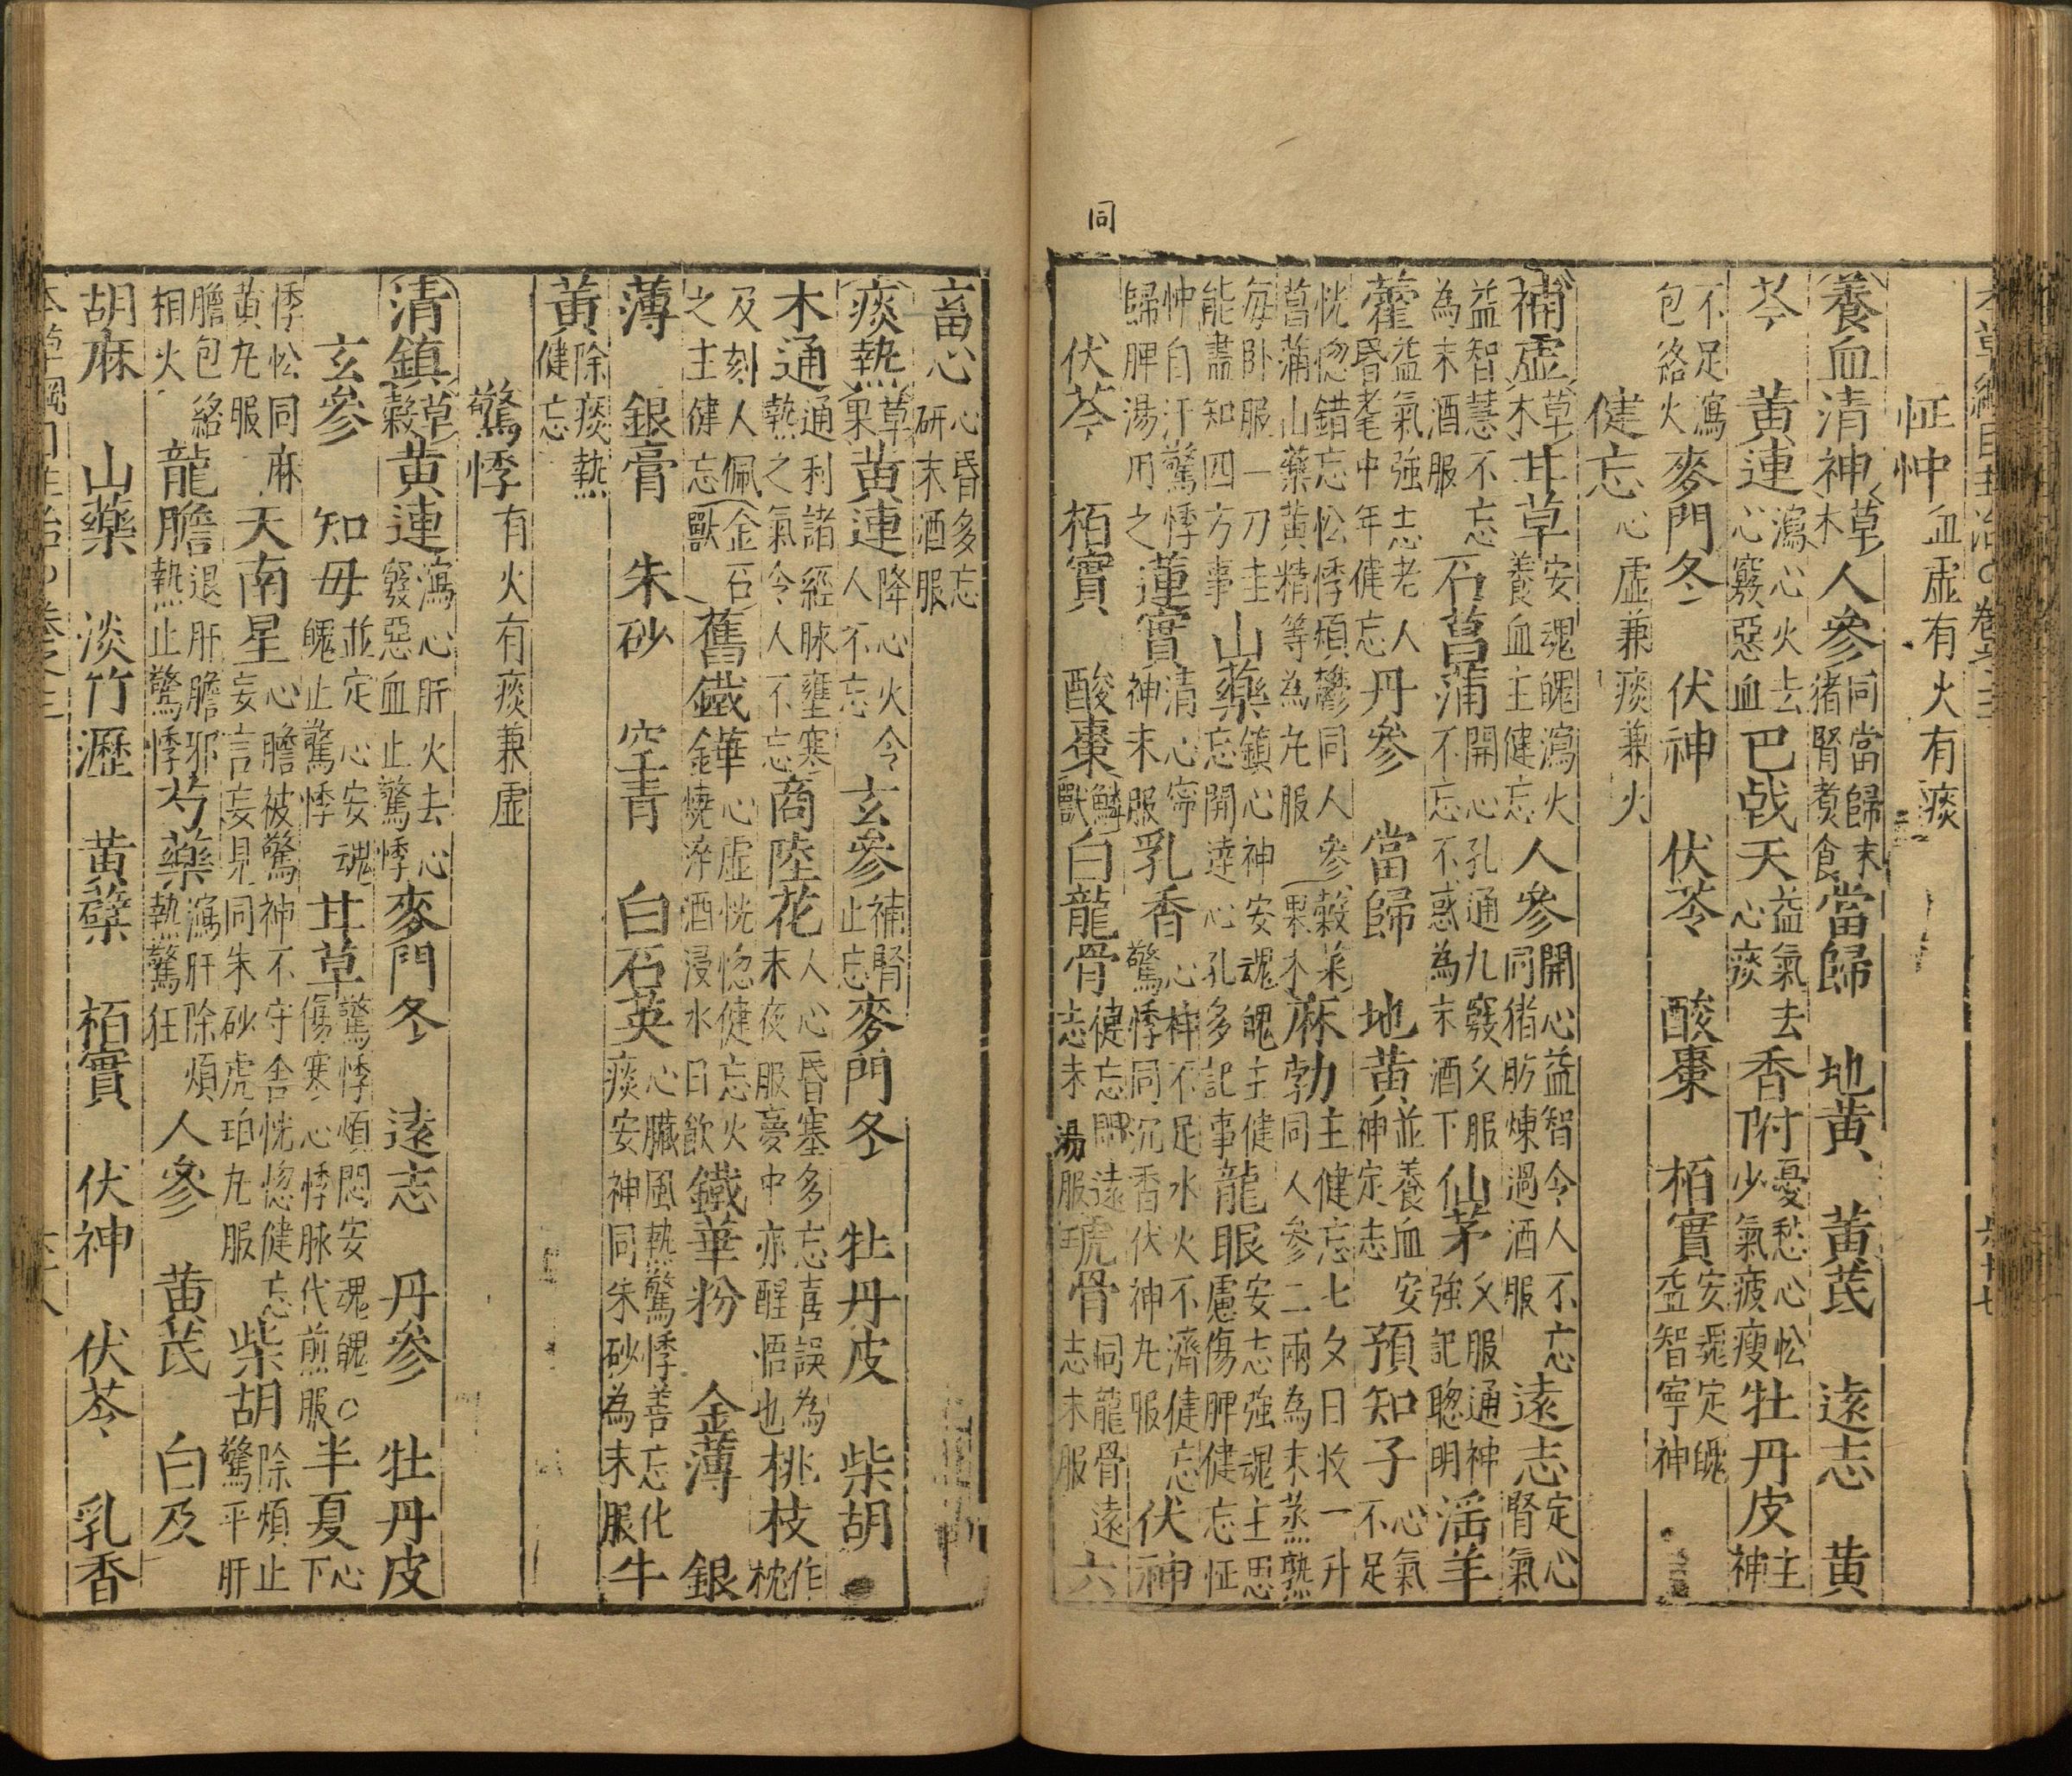 同
本草綱目主治○卷之三 六十七
怔忡血虛有火有痰
養血清神草木人參同當歸末猪腎煑食當歸 地黃 黃芪 遠志 黃
芩 黃連瀉心火去心竅惡血巴戟天益氣去心痰香附憂愁心忪少氣疲瘦牡丹皮主神
不足瀉包絡火麥門冬 伏神 伏苓 酸棗 栢實安䰟定魄益智寧神
健忘心虛兼痰兼火
補虛草木甘草安魂魄瀉火養血主健忘人參開心益智令人不忘同猪肪煉過酒服遠志定心腎氣
益智慧不忘為末酒服石菖蒲開心孔通九竅久服不忘不惑為末酒下仙茅久服通神強記聰明淫羊
藿益氣強志老人昏耄中年健忘丹參 當歸 地黃並養血安神定志預知子心氣不足
恍惚錯忘忪悸煩鬱同人參菖蒲山藥黃精等為丸服穀菜果木麻勃主健忘七夕日收一升同人參二兩為末蒸熟
每卧服一刀圭能盡知四方事山藥鎮心神安魂魄主健忘開達心孔多記事龍眼安志強魂主思慮傷脾健忘怔
忡自汗驚悸歸脾湯用之蓮實清心寧神末服乳香心神不足水火不濟健忘驚悸同沉香伏神丸服伏神
伏苓 栢實 酸棗鱗獸白龍骨健忘同遠志末湯服虎骨同龍骨遠志末服六
畜心心昏多忘研末酒服
痰熱草果黃連降心火令人不忘玄參補腎止忘麥門冬 牡丹皮 柴胡
木通通利諸經脉壅寒熱之氣令人不忘商陸花人心昏塞多忘喜誤為末夜服夢中亦醒悟也桃枝作枕
及刻人佩之主健忘金石獸舊鐵鏵心虛恍惚健忘火燒淬酒浸水日飲鐵華粉 金薄 銀
薄 銀膏 朱砂 空青 白石英心臟風熱驚悸善忘化痰安神同朱砂為末服牛
黃除痰熱健忘
驚悸有火有痰兼虛
清鎮草穀黃連瀉心肝火去心竅惡血止驚悸麥門冬 遠志 丹參 牡丹皮
玄參 知毋並定心安魂魄止驚悸甘草驚悸煩悶安魂魄○傷寒心悸脉代煎服半夏心下
悸忪同麻黃丸服天南星心膽被驚神不守舍恍惚健忘妄言妄見同朱砂虎珀丸服柴胡除煩止驚平肝
膽包絡相火龍膽退肝膽邪熱止驚悸芍藥瀉肝除煩熱驚狂人參 黃芪 白及
胡麻 山藥 淡竹瀝 黃蘗 栢實 伏神 伏苓 乳香